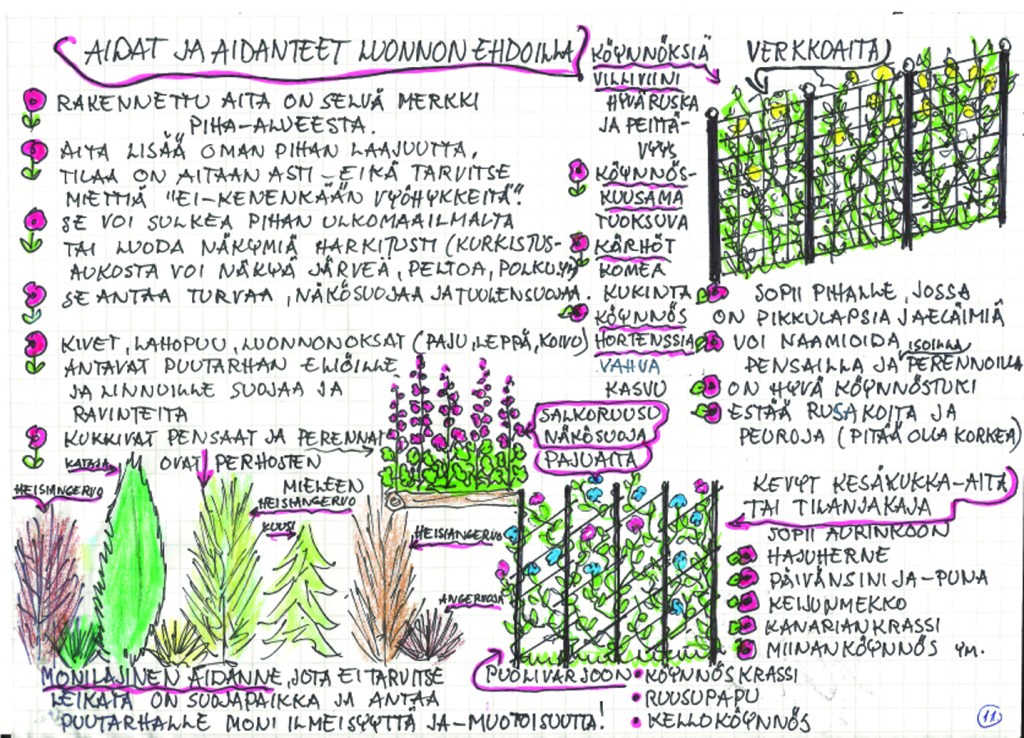 AIDAT JA AIDANTEET LUONNON EHDOILLA
RAKENNETTU AITA ON SELVÄ MERKKI
PIHA-ALUEESTA.
AITA LISÄÄ OMAN PIHAN LAAJUUTTA,
TILAA ON AITAAN ASTI - EIKÄ TARVITSE
MIETTIÄ "EI-KENENKÄÄN VYÖHYKKEITÄ".
SE VOI SULKEA PIHAN ULKOMAAILMALTA
TAI LUODA NÄKYMIÄ HARKITUSTI (KURKISTUS-
AUKOSTA VOI NÄKYÄ JÄRVEÄ, PELTOA, POLKU, YM
SE ANTAA TURVAA, NÄKÖSUOJAA JA TUULENSUOJAA.
KIVET, LAHOPUU, LUONNONOKSAT (PAJU, LEPPÄ, KOIVU)
ANTAVAT PUUTARHAN ELIÖILLE
JA LINNUILLE SUOJAA JA
RAVINTEITA
KUKKIVAT PENSAAT JA PERENNAT
OVAT PERHOSTEN
MIELEEN
KÖYNNÖKSIÄ
VILLIVIINI
HYVÄ RUSKA
JA PEITTÄ-
VYYS
KÖYNNÖS-
KUUSAMA
TUOKSUVA
KÄRHÖT
KOMEA
KUKINTA
KÖYNNÖS
HORTENSSIA
VAHVA
KASVU
VERKKOAITA
SOPII PIHALLE, JOSSA
ON PIKKULAPSIA JA ELÄIMIÄ
VOI NAAMIOIDA ISOILLA
PENSAILLA JA PERENNOILLA
ON HYVÄ KÖYNNÖSTUKI
ESTÄÄ RUSAKOITA JA
PEUROJA (PITÄÄ OLLA KORKEA)
SALKORUUSU
NÄKÖSUOJA
PAJUAITA
KATAJA
HEISIANGERVO
HEISIANGERVO
KUUSI
HEISIANGERVO
ANGERVOJA
KEVYT KESÄKUKKA-AITA
TAI TILANJAKAJA
SOPII AURINKOON
HAJUHERNE
PÄIVÄNSINI JA-PUNA
KEIJUNMEKKO
KANARIANKRASSI
MIINANKÖYNNÖS YM.
PUOLIVARJOON • KÖYNNÖSKRASSI
• RUUSUPAPU
• KELLOKÖYNNÖS
MONILAJINEN AIDANNE, JOTA EI TARVITSE
LEIKATA ON SUOJAPAIKKA JA ANTAA
PUUTARHALLE MONI ILMEISYYTTÄ JA-MUOTOISUUTTA!
11